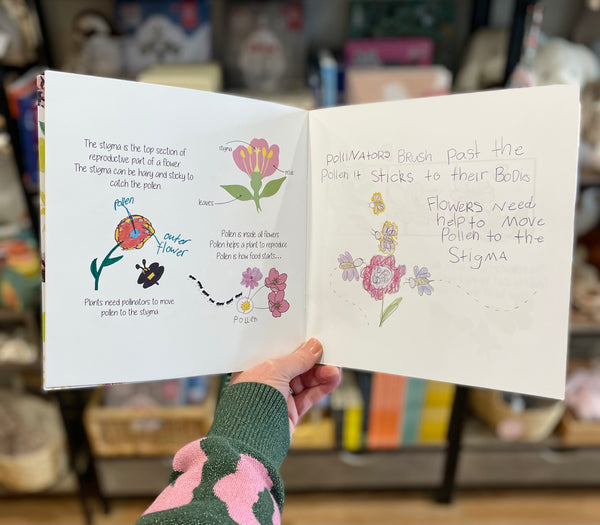 The stigma is the top section of
reproductive part of a flower.
The stigma can be hairy and sticky to
catch the pollen.
stigma
leaves
pollen
outer
flower
Pollen is inside all flowers
Pollen helps a plant to reproduce
Pollen is how food starts...
Pollen
Plants need pollinators to move
pollen to the stigma
POllINATORS BRUSH past the
Pollen it STICKS to their BODIES
FLOWERS NEED
help to Move
Pollen to the
STIGMA